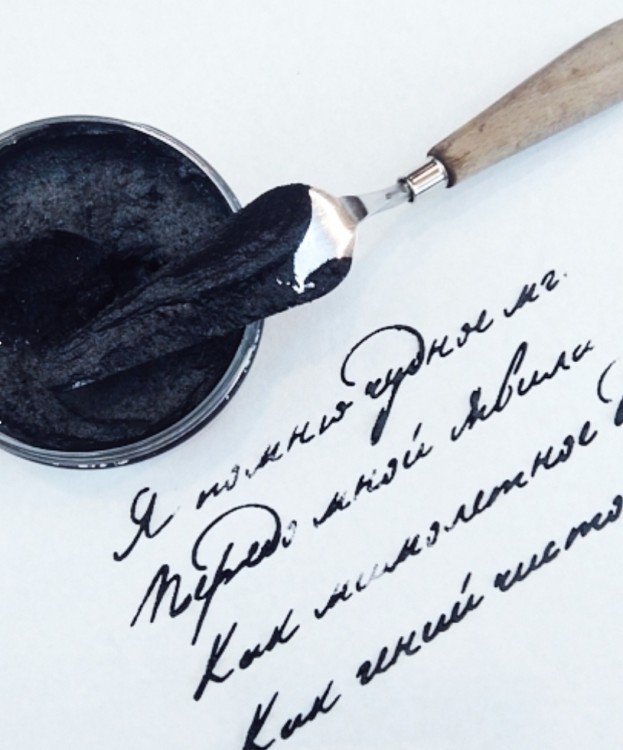 Я помню чудное мг
Передо мной явила
Как мимолетное
Как гений чисто